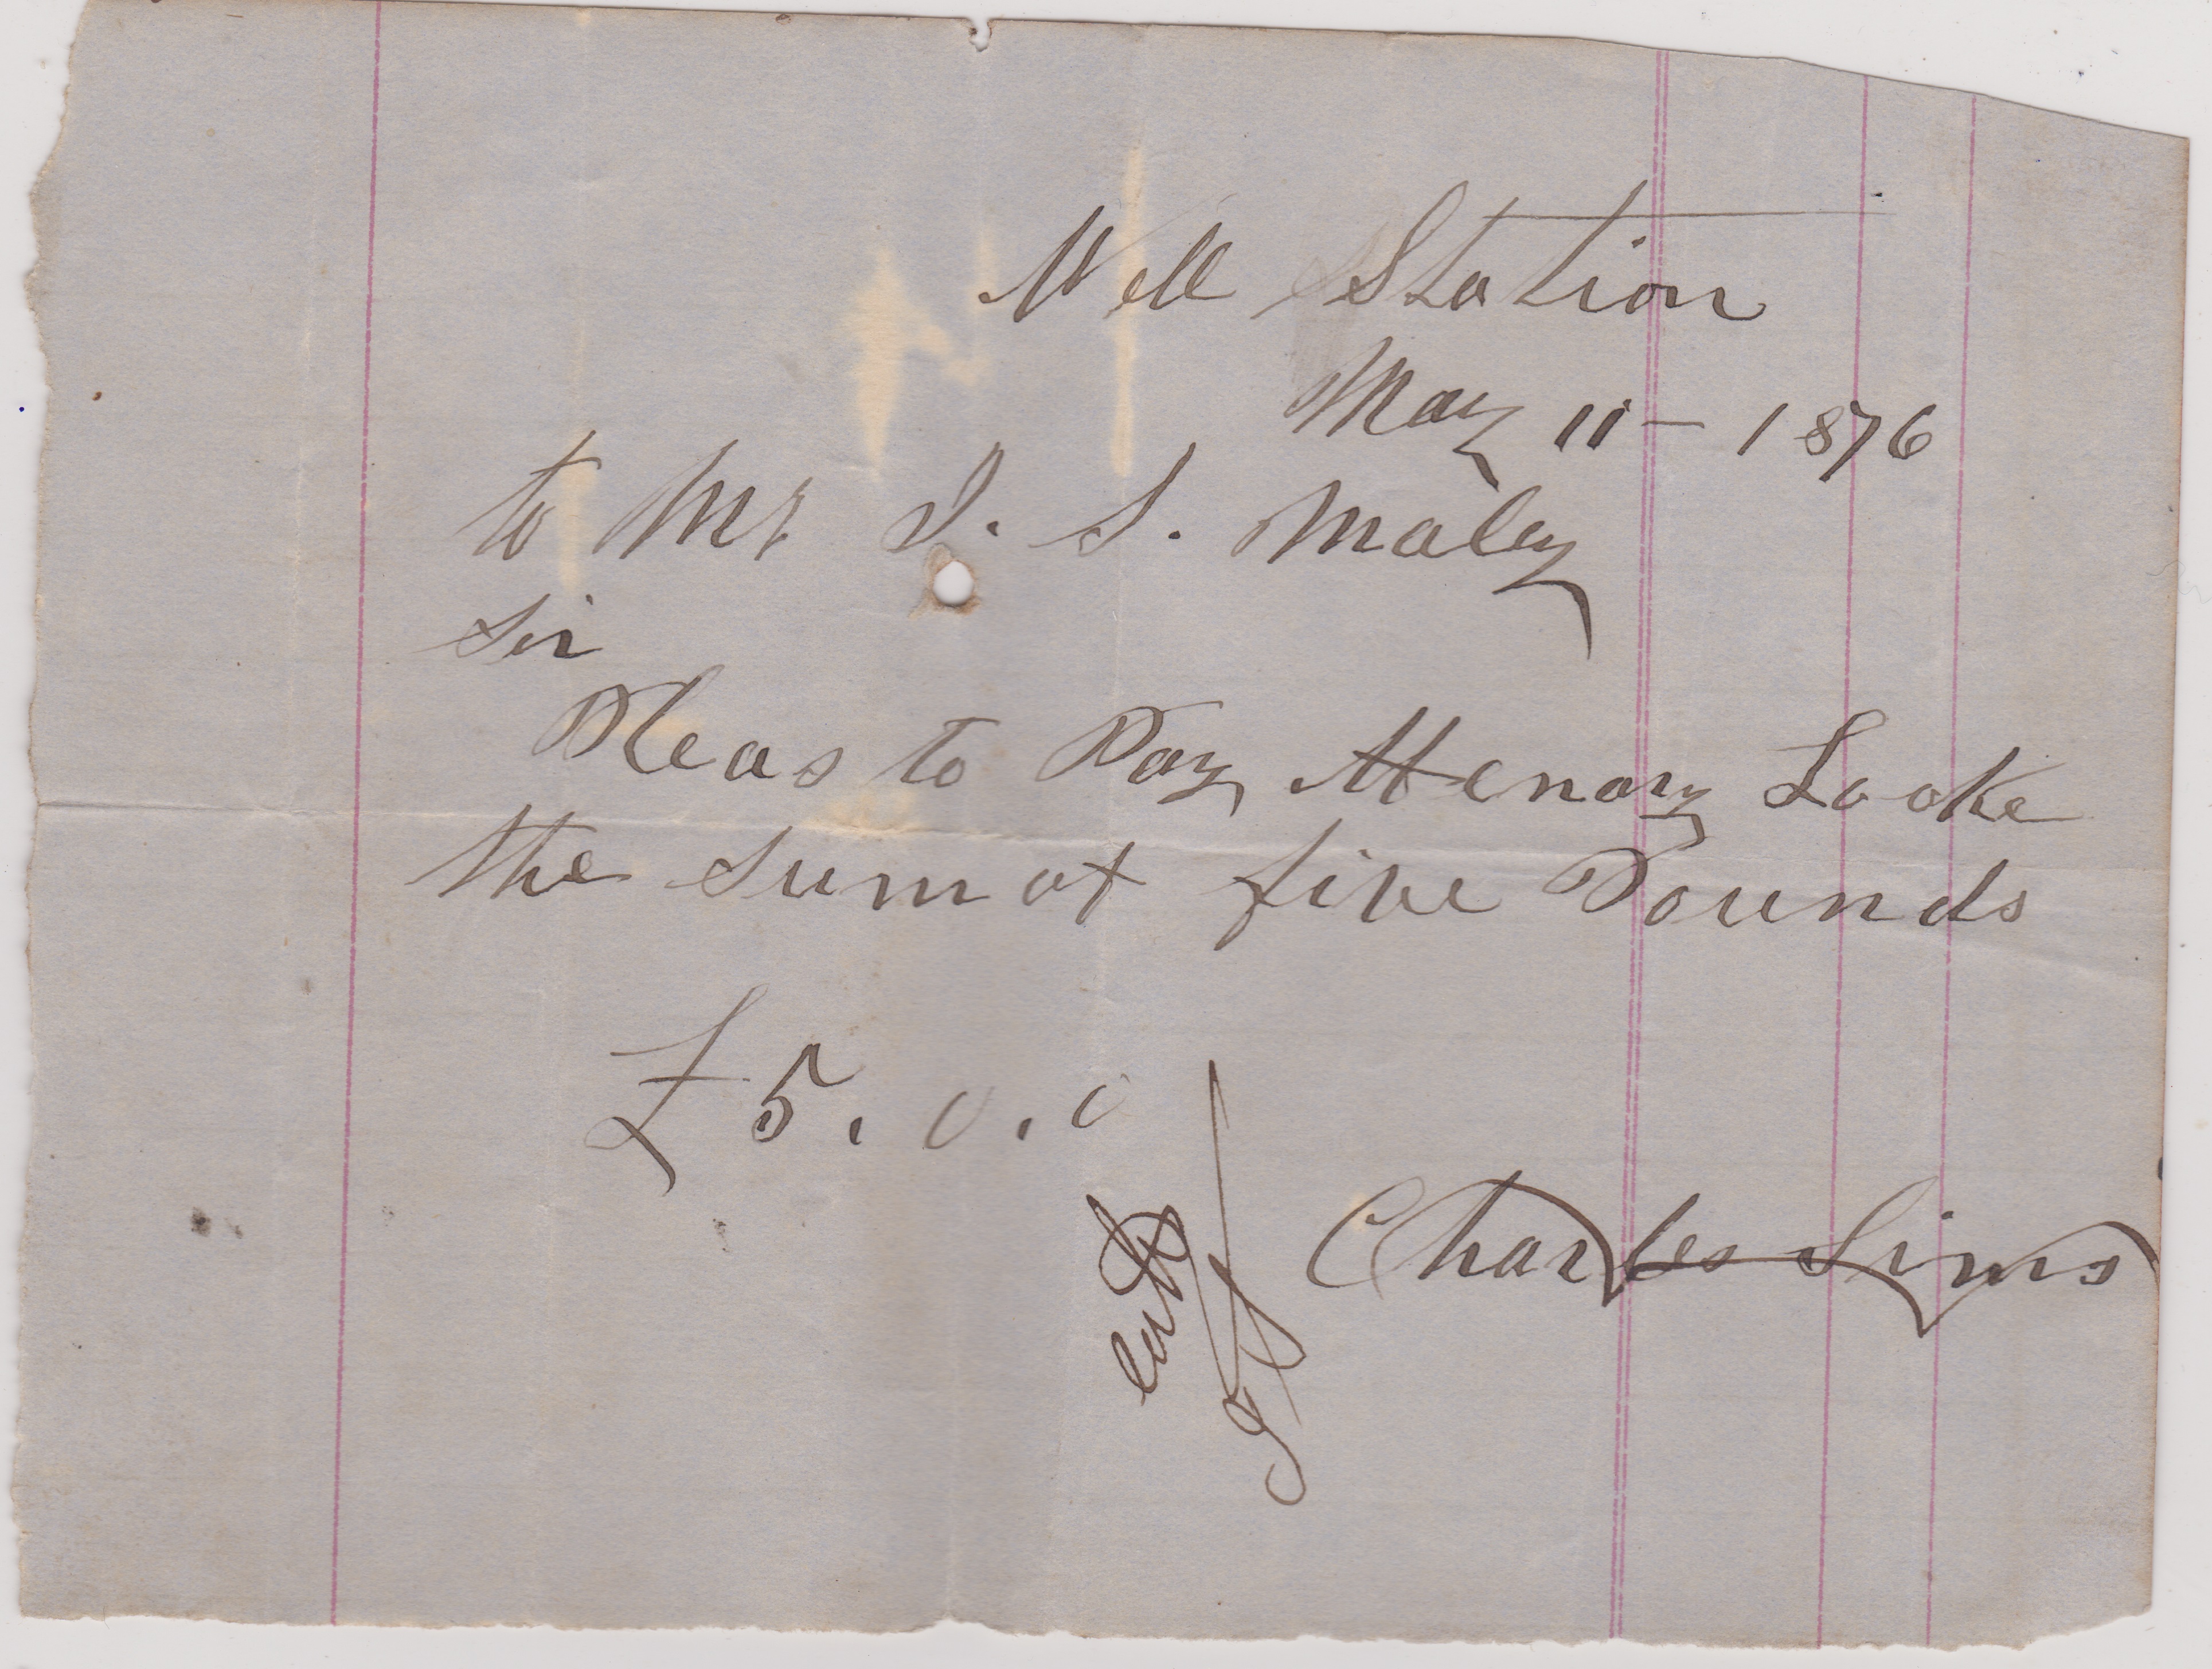 Well Station
May 11 - 1876
to Mr J. S. Maley
Sir
Pleas to Pay Henary Looke
the Sum of five Pounds
£5.0.0
Charles Sims